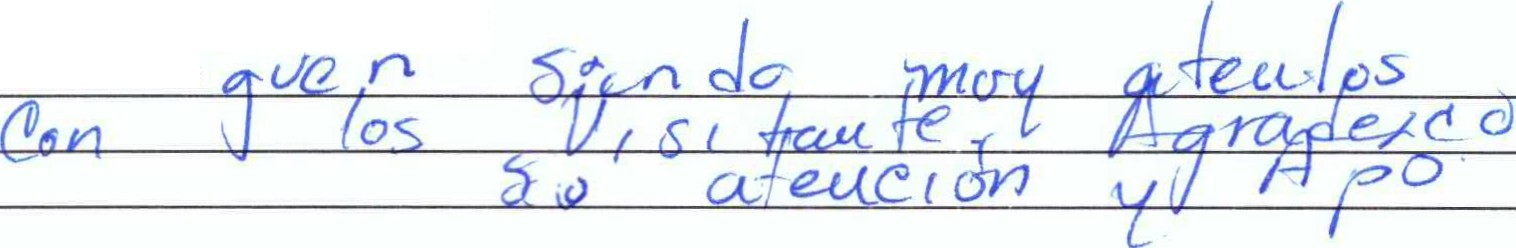 guen siendo moy atentos
Con los Visitante, Agradezco
so atención y Apo